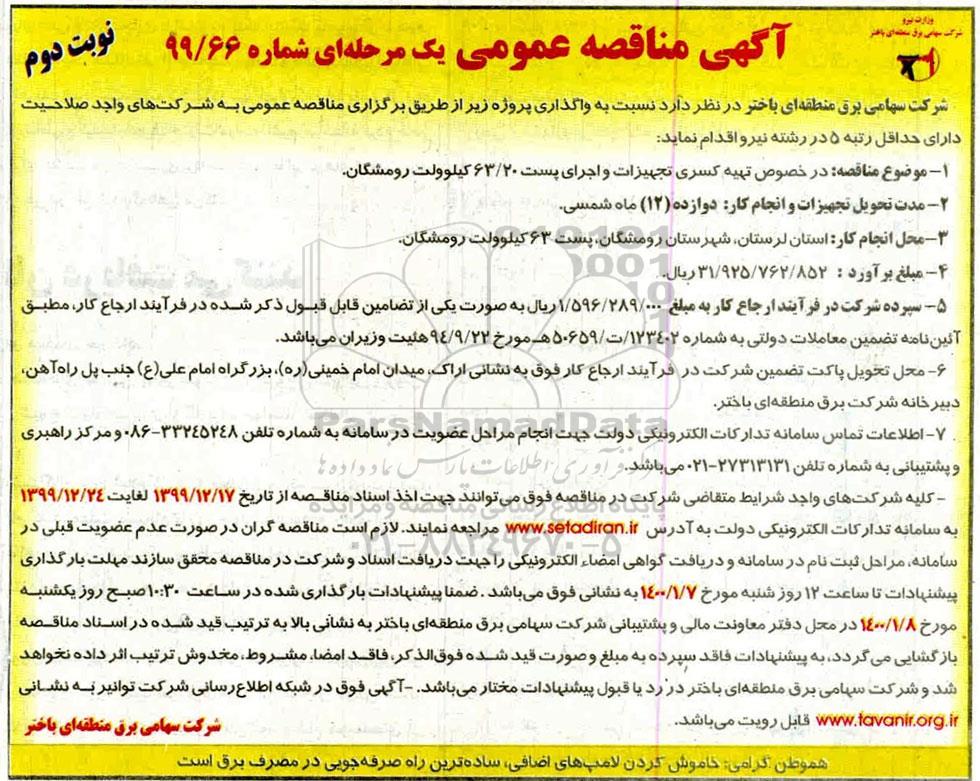 وزارت نیرو
شرکت سهامی برق منطقه‌ای باختر
آگهی مناقصه عمومی یک مرحله‌ای شماره ۹۹/۶۶
نوبت دوم
شرکت سهامی برق منطقه‌ای باختر در نظر دارد نسبت به واگذاری پروژه زیر از طریق برگزاری مناقصه عمومی به شرکت‌های واجد صلاحیت
دارای حداقل رتبه ۵ در رشته نیرو اقدام نماید:
۱- موضوع مناقصه: در خصوص تهیه کسری تجهیزات و اجرای پست ۶۳/۲۰ کیلوولت رومشگان.
۲- مدت تحویل تجهیزات و انجام کار: دوازده (۱۲) ماه شمسی.
۳- محل انجام کار: استان لرستان، شهرستان رومشگان، پست ۶۳ کیلوولت رومشگان.
۴- مبلغ برآورد : ۳۱/۹۲۵/۷۶۲/۸۵۲ ریال.
۵- سپرده شرکت در فرآیند ارجاع کار به مبلغ ۱/۵۹۶/۲۸۹/۰۰۰ ریال به صورت یکی از تضامین قابل قبول ذکر شده در فرآیند ارجاع کار، مطبق
آئین‌نامه تضمین معاملات دولتی به شماره ۱۲۳۴۰۲/ت/۵۰۶۵۹ هـ مورخ ۹۴/۹/۲۲ هئیت وزیران می‌باشد.
۶- محل تحویل پاکت تضمین شرکت در فرآیند ارجاع کار فوق به نشانی اراک، میدان امام خمینی(ره)، بزرگراه امام علی(ع) جنب پل راه‌آهن،
دبیرخانه شرکت برق منطقه‌ای باختر.
۷- اطلاعات تماس سامانه تدارکات الکترونیکی دولت جهت انجام مراحل عضویت در سامانه به شماره تلفن ۳۳۲۴۵۲۴۸-۰۸۶ و مرکز راهبری
و پشتیبانی به شماره تلفن ۲۷۳۱۳۱۳۱-۰۲۱ می‌باشد.
- کلیه شرکت‌های واجد شرایط متقاضی شرکت در مناقصه فوق می‌توانند جهت اخذ اسناد مناقصه از تاریخ ۱۳۹۹/۱۲/۱۷ لغایت ۱۳۹۹/۱۲/۲۴
به سامانه تدارکات الکترونیکی دولت به آدرس www.setadiran.ir مراجعه نمایند. لازم است مناقصه گران در صورت عدم عضویت قبلی در
سامانه، مراحل ثبت نام در سامانه و دریافت گواهی امضاء الکترونیکی را جهت دریافت اسناد و شرکت در مناقصه محقق سازند مهلت بارگذاری
پیشنهادات تا ساعت ۱۲ روز شنبه مورخ ۱۴۰۰/۱/۷ به نشانی فوق می‌باشد. ضمنا پیشنهادات بارگذاری شده در ساعت ۱۰:۳۰ صبح روز یکشنبه
مورخ ۱۴۰۰/۱/۸ در محل دفتر معاونت مالی و پشتیبانی شرکت سهامی برق منطقه‌ای باختر به نشانی بالا به ترتیب قید شده در اسناد مناقصه
بازگشایی می‌گردد، به پیشنهادات فاقد سپرده به مبلغ و صورت قید شده فوق‌الذکر، فاقد امضا، مشروط، مخدوش ترتیب اثر داده نخواهد
شد و شرکت سهامی برق منطقه‌ای باختر در رد یا قبول پیشنهادات مختار می‌باشد. -آگهی فوق در شبکه اطلاع‌رسانی شرکت توانیر به نشانی
www.tavanir.org.ir قابل رویت می‌باشد.
شرکت سهامی برق منطقه‌ای باختر
هموطن گرامی: خاموش کردن لامپ‌های اضافی، ساده‌ترین راه صرفه‌جویی در مصرف برق است
ParsNamadData
مرکز فرآوری اطلاعات پارس نماد داده‌ها
پایگاه اطلاع رسانی مناقصه و مزایده
۰۲۱-۸۸۳۴۹۶۷۰-۵